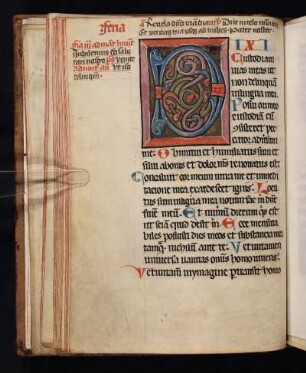 feria
IXI
Custodiam
vias meas ut
non delinquam
in lingua mea.
Posui ori meo
custodiã cũ
sisteret pec
cator adversũ
me. Obmutui et humiliatus sum et
silui a bonis et dolor ms renovatus est
Concaluit cor meum intra me et in medi
tacione mea exardescet ignis. Locu
tus sum in lingua mea notum fac m dñe
finẽ meũ. Et numũ dierum qs est
ut sciã quid desit m Ecce mensura
biles posuisti dies meos et substancia mea
tamq nichilũ ante te. Verumtamen
universa vanitas omis homo vivens.
Verumtam in ymagine ptransit homo